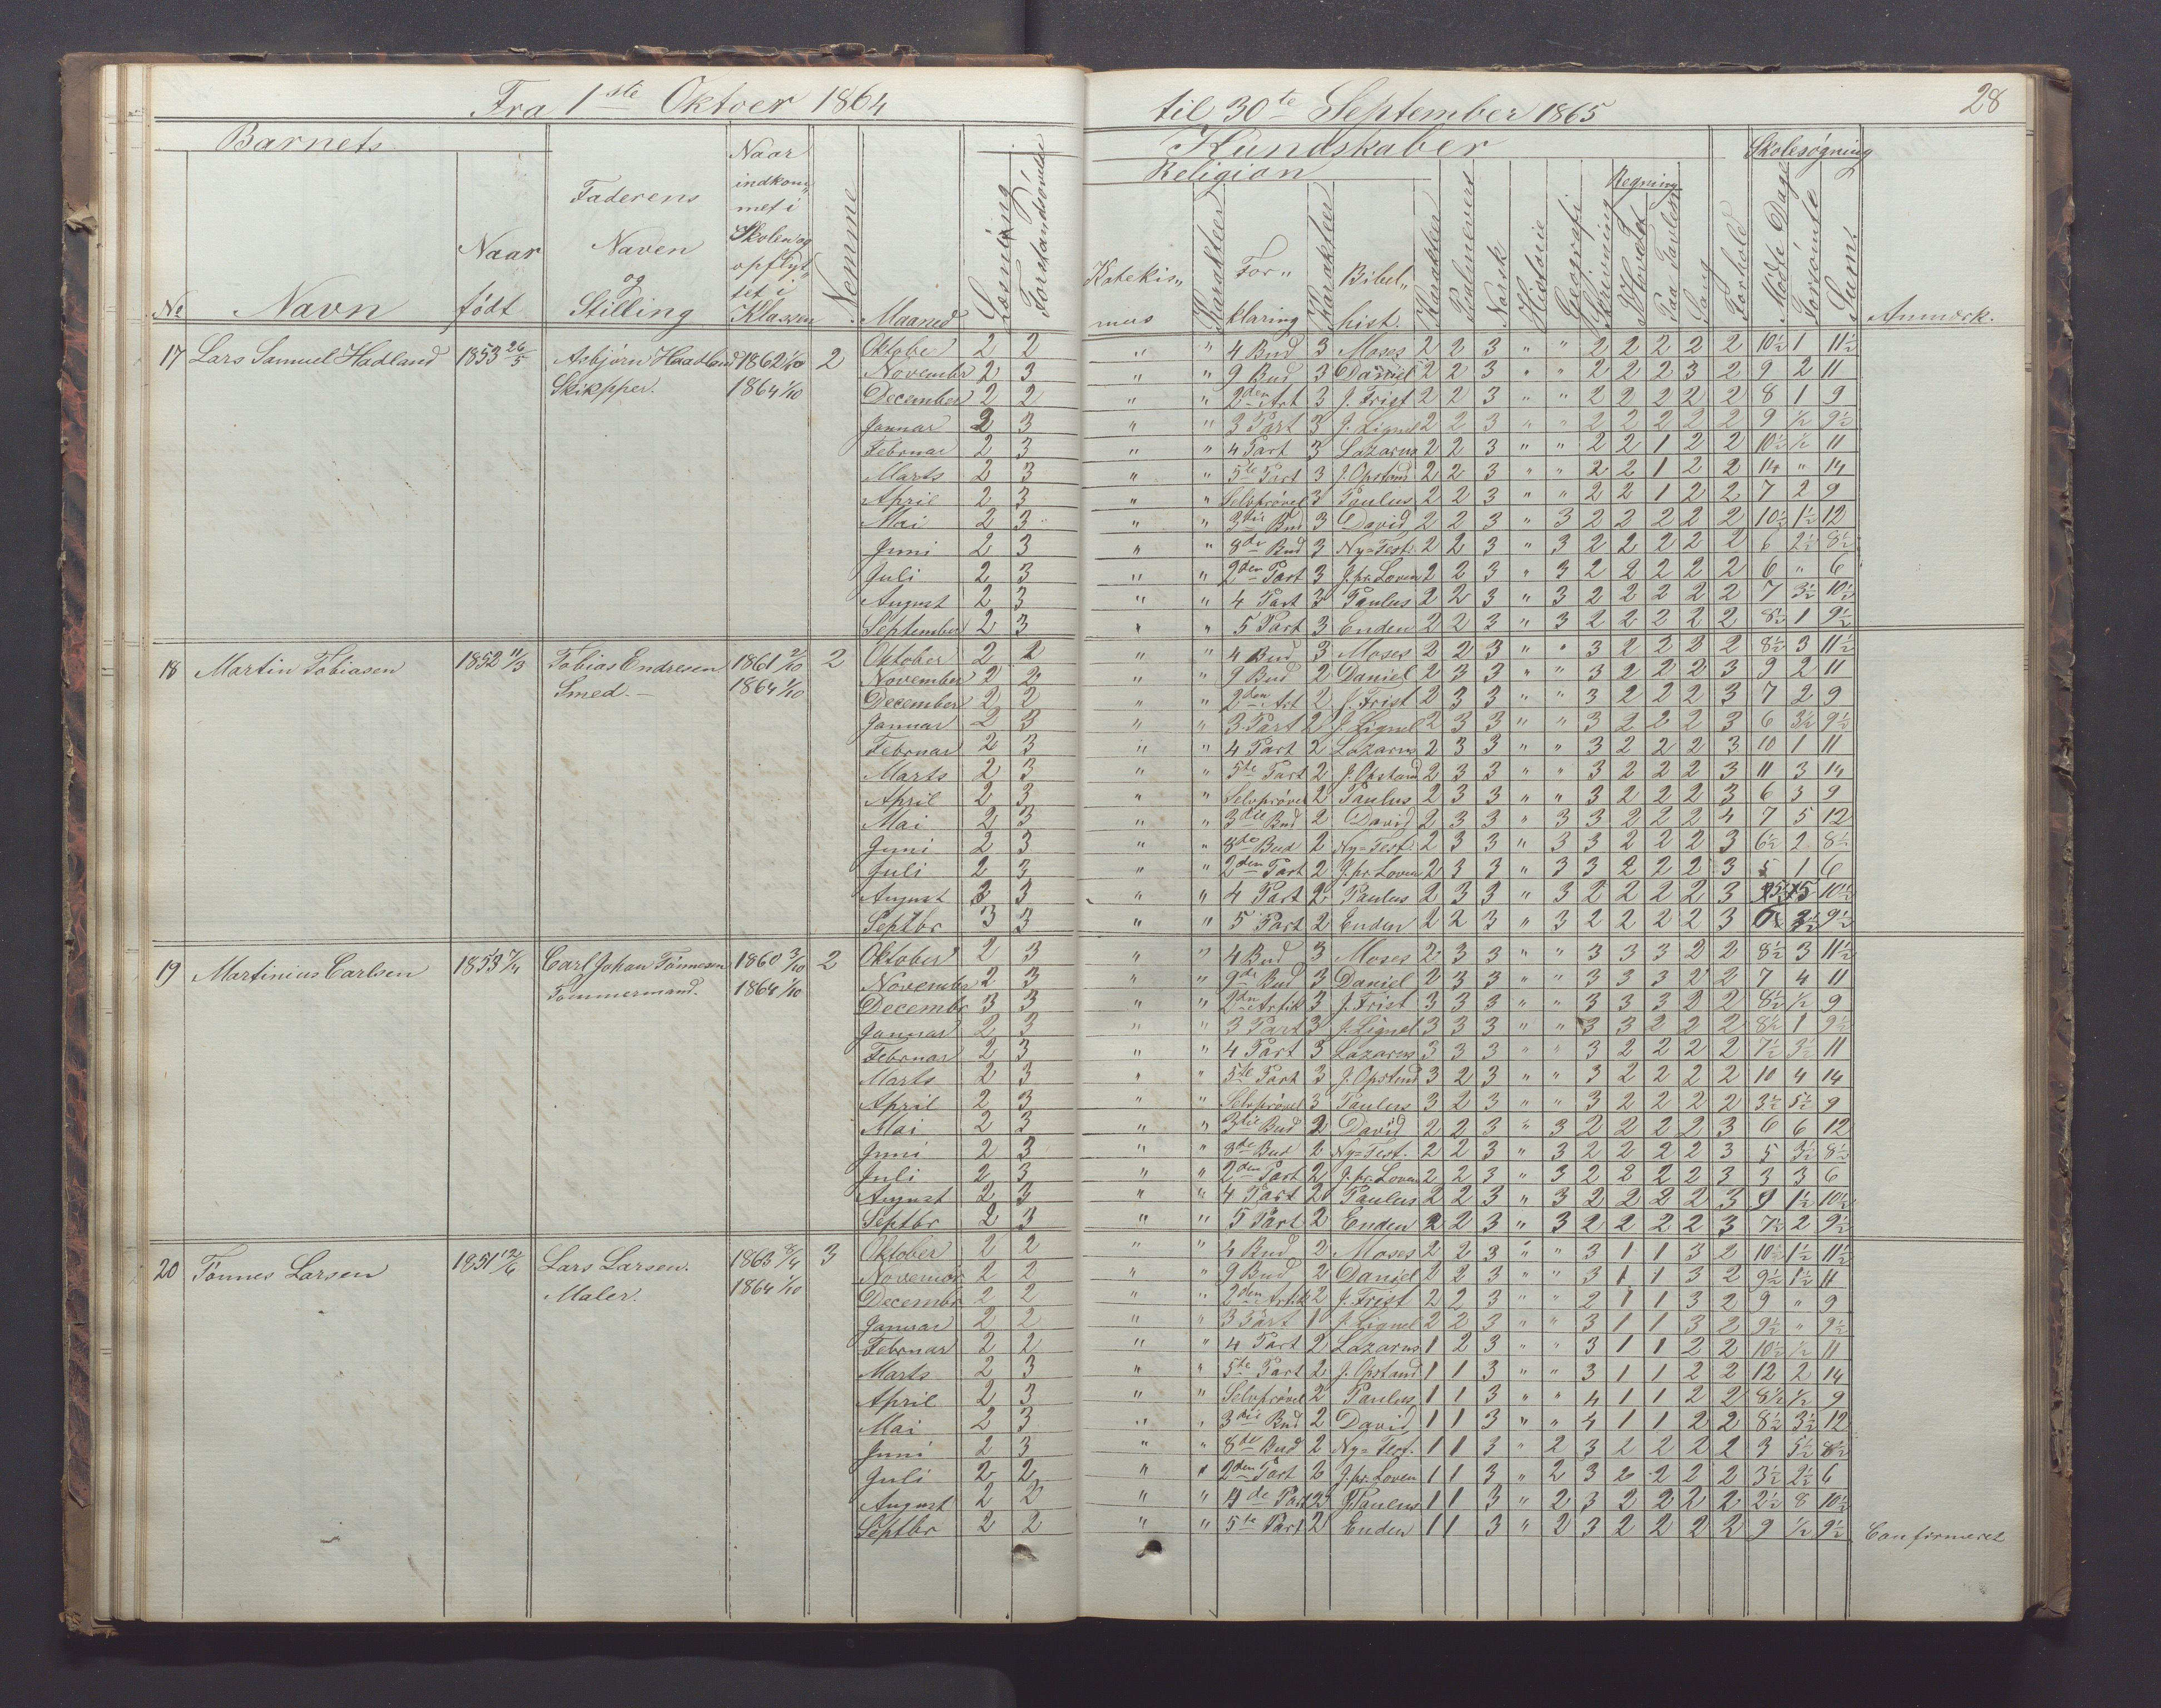 Fra 1ste Oktoer 1864 til 30te September 1865 28
Barnets Kundskaber Skolesøgning
Religion Regning
No Navn Naar født Faderens Naven og Stilling Naar indkommet i Skolen og opflyttet i Klassen Nemme Maaned Læsning Forstandsøvelse Katekismus Karakter Forklaring Karakter Bibelhist. Karakter Psalmevers Norsk Historie Geografi Skrivning I Hovedet Paa Tavlen Sang Forhold Møde Dage Forsømte Sum. Anmærk.
17 Lars Samuel Hadland 1853 26/5 Asbjørn Haadland 1862 1/10 2 Oktober 2 2 " " 4 Bud 3 Moses 2 2 3 " " 2 2 2 2 2 10½ 1 11½
Skikpper. 1864 1/10 November 2 3 " " 9 Bud 3 Daniel 2 2 3 " " 2 2 2 3 2 9 2 11
December 2 2 " " 2den Art 3 J. Frist 2 2 3 " " 2 2 2 2 2 8 1 9
Januar 2 3 " " 3 Part 3 J. Lignel 2 2 3 " " 2 2 2 2 2 9 ½ 9½
Februar 2 3 " " 4 Part 3 Lazarus 2 2 3 " " 2 2 1 2 2 10½ ½ 11
Marts 2 3 " " 5te Part 3 J. Opstand 2 2 3 " " 2 2 1 2 2 14 " 14
April 2 3 " " Selvprövel 3 Paulus 2 2 3 " " 2 2 1 2 2 7 2 9
Mai 2 3 " " 3die Bud 3 David 2 2 3 " 3 2 2 2 2 2 10½ 1½ 12
Juni 2 3 " " 8de Bud 3 Ny=Test. 2 2 3 " 3 2 2 2 2 2 6 2½ 8½
Juli 2 3 " " 2den Part 3 J. pr. Loven 2 2 3 " 3 2 2 2 2 2 6 " 6
August 2 3 " " 4 Part 3 Paulus 2 2 3 " 3 2 2 2 2 2 7 3½ 10½
September 2 3 " " 5 Part 3 Enden 2 2 3 " 3 2 2 2 2 2 8½ 1 9½
18 Martin Tobiasen 1852 11/3 Tobias Endresen 1861 2/10 2 Oktober 2 2 " " 4 Bud 3 Moses 2 2 3 " " 3 2 2 2 2 8½ 3 11½
Smed. 1864 1/10 November 2 2 " " 9 Bud 2 Daniel 2 3 3 " " 3 2 2 2 3 9 2 11
December 2 2 " " 2den Art 2 J. Frist 2 3 3 " " 3 2 2 2 3 7 2 9
Januar 2 3 " " 3 Part 2 J. Lignel 2 3 3 " " 3 2 2 2 3 6 3½ 9½
Februar 2 3 " " 4 Part 2 Lazarus 2 3 3 " " 3 2 2 2 3 10 1 11
Marts 2 3 " " 5te Part 2 J. Opstand 2 3 3 " " 3 2 2 2 3 11 3 14
April 2 3 " " Selvprövel 2 Paulus 2 3 3 " " 3 2 2 2 3 6 3 9
Mai 2 3 " " 3die Bud 2 David 2 3 3 " 3 3 2 2 2 4 7 5 12
Juni 2 3 " " 8de Bud 2 Ny=Test. 2 3 3 " 3 3 2 2 2 3 6½ 2 8½
Juli 2 3 " " 2den Part 2 J. pr. Loven 2 3 3 " 3 3 2 2 2 3 5 1 6
August 3 3 " " 4 Part 2 Paulus 2 3 3 " 3 2 2 2 2 3 5½ 5 10½
Septbr 3 3 " " 5 Part 2 Enden 2 2 3 " 3 2 2 2 2 3 6 3½ 9½
19 Martinius Carlsen 1853 7/4 Carl Johan Tönnesen 1860 3/10 2 Oktober 2 3 " " 4 Bud 3 Moses 2 3 3 " " 3 3 3 2 2 8½ 3 11½
Tømmermand. 1864 1/10 November 2 3 " " 9de Bud 3 Daniel 2 3 3 " " 3 3 3 2 2 7 4 11
Decembr 3 3 " " 2dn Artik 3 J. Frist 3 3 3 " " 3 3 3 2 2 8½ ½ 9
Januar 2 3 " " 3 Part 3 J. Lignel 3 3 3 " " 3 3 2 2 2 8½ 1 9½
Februar 2 3 " " 4 Part 3 Lazarus 3 3 3 " " 3 2 2 2 2 7½ 3½ 11
Marts 2 3 " " 5te Part 3 J. Opstand 3 2 3 " " 3 2 2 2 2 10 4 14
April 2 3 " " Selvprövel 3 Paulus 3 2 3 " " 3 2 2 2 2 3½ 5½ 9
Mai 2 3 " " 3die Bud 2 David 2 2 3 " 3 2 2 2 2 3 6 6 12
Juni 2 3 " " 8de Bud 2 Ny=Test. 2 2 3 " 3 2 2 2 2 3 5 3½ 8½
Juli 2 3 " " 2den Part 2 J. pr. Loven 2 2 3 " 3 2 2 2 2 3 3 3 6
August 2 3 " " 4 Part 2 Paulus 2 2 3 " 3 2 2 2 2 3 9 1½ 10½
Septbr 2 3 " " 5 Part 2 Enden 2 2 3 " 3 2 2 2 2 3 7½ 2 9½
20 Tönnes Larsen 1851 12/6 Lars Larsen. 1863 8/4 3 Oktober 2 2 " " 4 Bud 2 Moses 2 2 3 " " 3 1 1 3 2 10½ 1½ 11½
Maler. 1864 1/10 Novembr 2 2 " " 9 Bud 2 Daniel 2 2 3 " " 3 1 1 3 2 9½ 1½ 11
Decembr 2 2 " " 2den Artik 2 J. Frist 2 2 3 " " 2 1 1 3 2 9 " 9
Januar 2 2 " " 3 Part 1 J. Lignel 2 2 3 " " 3 1 1 3 2 9½ " 9½
Februar 2 2 " " 4 Part 2 Lazarus 1 2 3 " " 3 1 1 2 2 10½ ½ 11
Marts 2 3 " " 5te Part 2 J. Opstand 1 1 3 " " 3 1 1 2 2 12 2 14
April 2 3 " " Selvprövel 2 Paulus 1 1 3 " " 4 1 1 2 2 8½ ½ 9
Mai 2 3 " " 3die Bud 2 David 1 1 3 " " 4 1 1 2 2 8½ 3½ 12
Juni 2 3 " " 8de Bud 2 Ny=Test. 1 1 3 " 2 3 2 2 2 2 3 5½ 8½
Juli 2 2 " " 2den Part 2 J. pr. Loven 1 1 3 " 2 3 2 2 2 2 3½ 2½ 6
August 2 2 " " 4de Part 2 Paulus 1 1 3 " 2 3 2 2 2 2 2½ 8 10½
Septbr 2 2 " " 5te Part 2 Enden 1 1 3 " 2 3 2 2 2 2 9 ½ 9½ Confirmeret